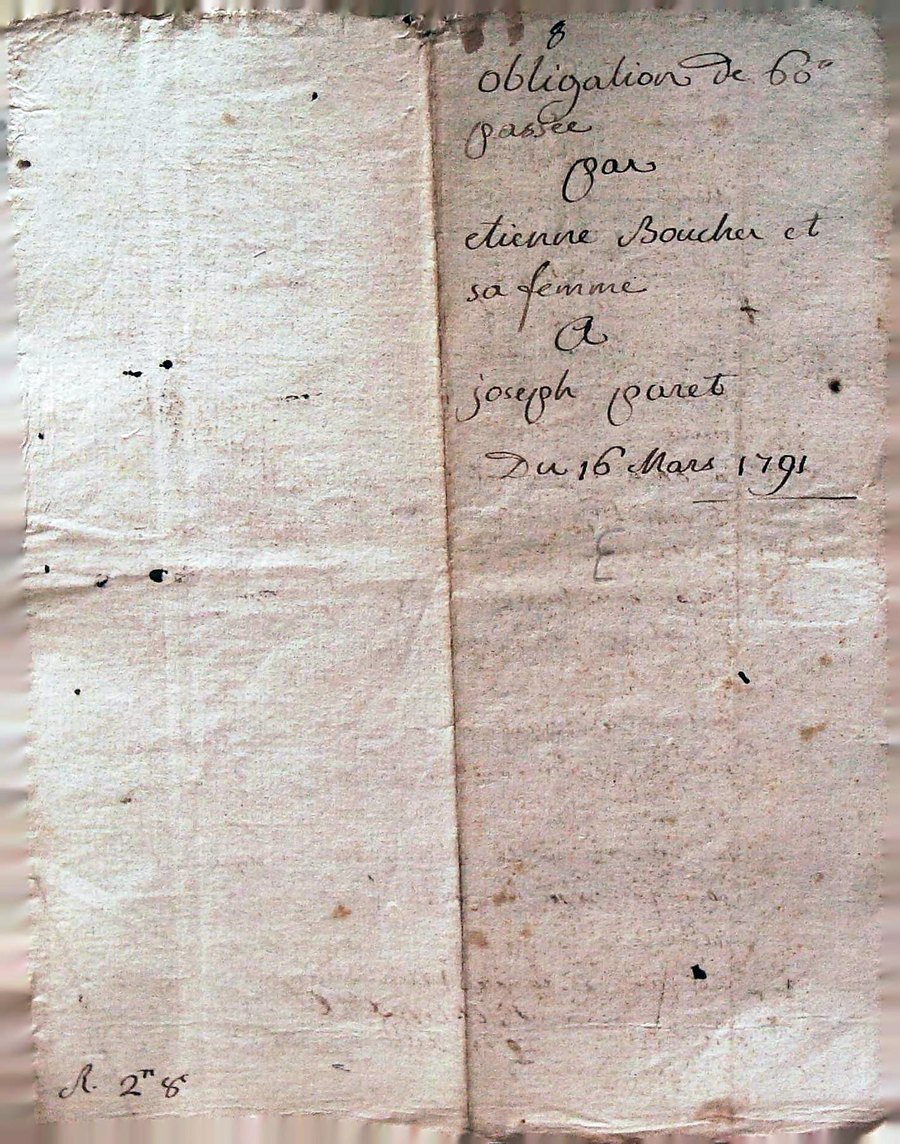 8
obligation de 60"
passée
par
etienne Boucher et
sa femme
A
joseph paret
Du 16 Mars 1791
E
R. 2" 8ˢ